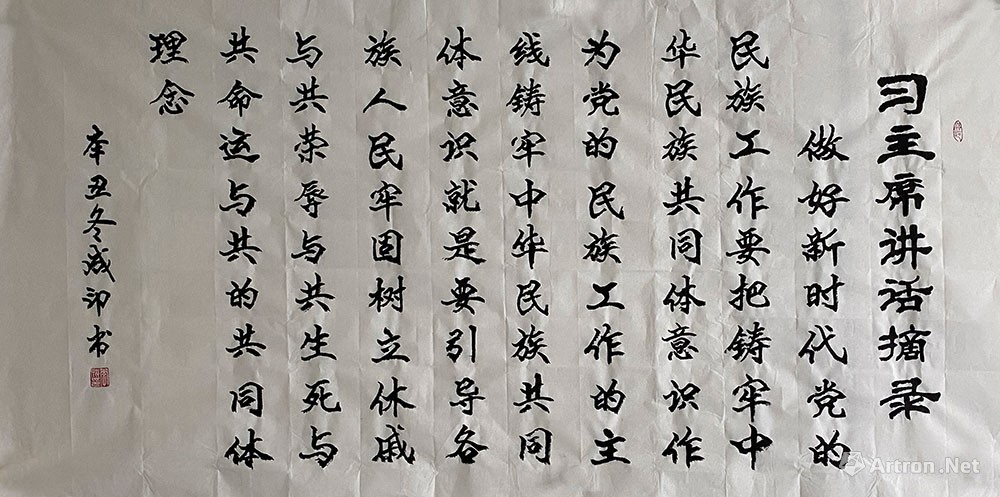 习主席讲话摘录
做好新时代党的
民族工作要把铸牢中
华民族共同体意识作
为党的民族工作的主
线铸牢中华民族共同
体意识就是要引导各
族人民牢固树立休戚
与共荣辱与共生死与
共命运与共的共同体
理念
辛丑冬成印书
Artron.Net